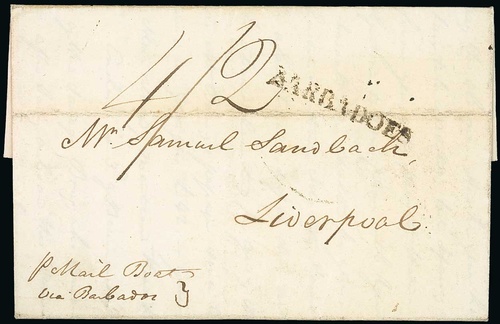 4/2
BARBADOES
Mr. Samuel Sandbach,
Liverpool.
p Mail Boat
via Barbados